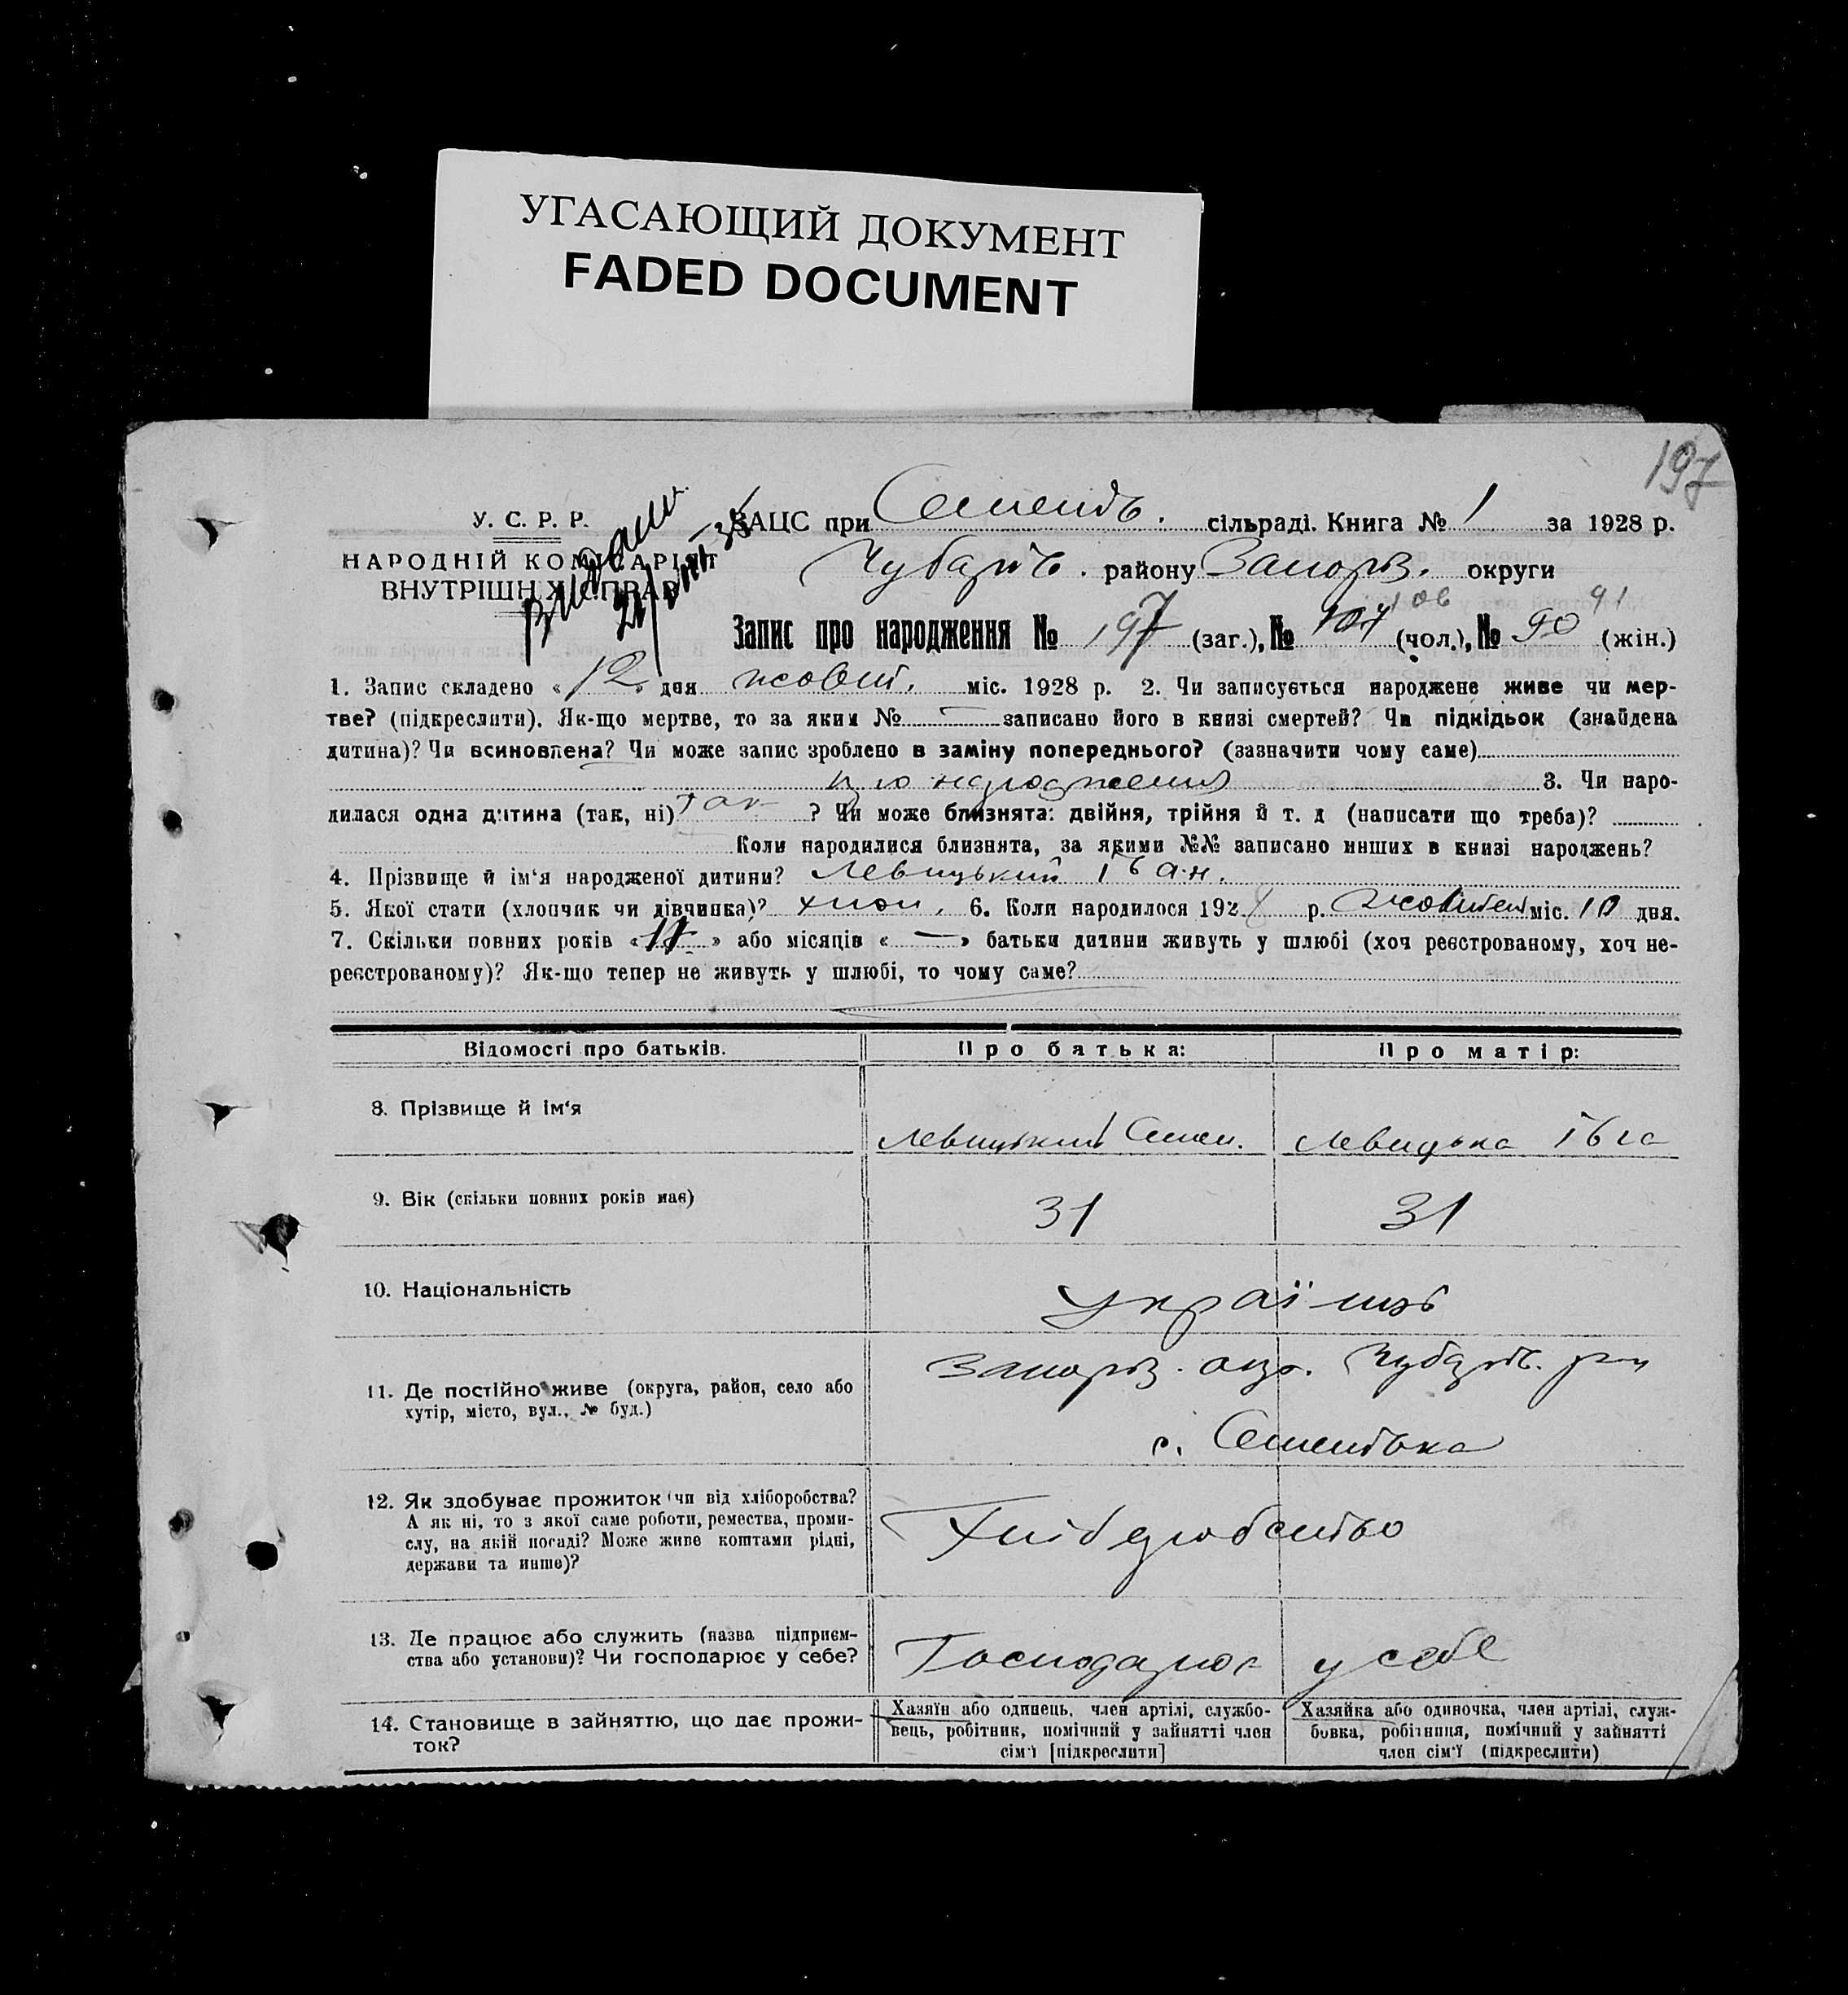 УГАСАЮЩИЙ ДОКУМЕНТ
FADED DOCUMENT
197
У. С. Р. Р.
НАРОДНІЙ КОМІСАРІЯТ
ВНУТРІШНІХ СПРАВ
ЗАЦС при Семенів. сільраді. Книга № 1 за 1928 р.
Чубарів. району Запоріз. округи
106 91
Запис про народження № 197 (заг.), № 107 (чол.), № 90 (жін.)
1. Запис складено «12» дня жовт. міс. 1928 р. 2. Чи записується народжене живе чи мер-
тве? (підкреслити). Як-що мертве, то за яким № — записано його в книзі смертей? Чи підкідьок (знайдена
дитина)? Чи всиновлена? Чи може запис зроблено в заміну попереднього? (зазначити чому саме)
про народження 3. Чи наро-
дилася одна дитина (так, ні) так ? Чи може близнята: двійня, трійня й т. д (написати що треба)?
Коли народилися близнята, за якими №№ записано инших в книзі народжень?
4. Прізвище й ім‘я народженої дитини? Левицький Іван.
5. Якої стати (хлопчик чи дівчинка)? хлоп. 6. Коли народилося 1928 р. Жовтень міс. 10 дня.
7. Скільки повних років «11» або місяців «—» батьки дитини живуть у шлюбі (хоч реєстрованому, хоч не-
реєстрованому)? Як-що тепер не живуть у шлюбі, то чому саме?
Відомості про батьків. Про батька: Про матір:
8. Прізвище й ім‘я
Левицький Семен. Левицька Івга
9. Вік (скільки повних років має) 31 31
10. Національність україн
Запоріз. окр. Чубарів. рай
11. Де постійно живе (округа, район, село або
хутір, місто, вул., № буд.)
с. Семенівка
12. Як здобуває прожиток (чи від хліборобства?
А як ні, то з якої саме роботи, ремества, проми-
слу, на якій посаді? Може живе коштами рідні,
держави та инше)?
Хліборобство
13. Де працює або служить (назва підприєм-
ства або установи)? Чи господарює у себе?
Господарює у себе
14. Становище в зайняттю, що дає прожи-
ток?
Хазяїн або одинець, член артілі, службо-
вець, робітник, помічний у зайнятті член
сім‘ї [підкреслити]
Хазяйка або одиночка, член артілі, служ-
бовка, робітниця, помічний у зайнятті
член сім‘ї (підкреслити)